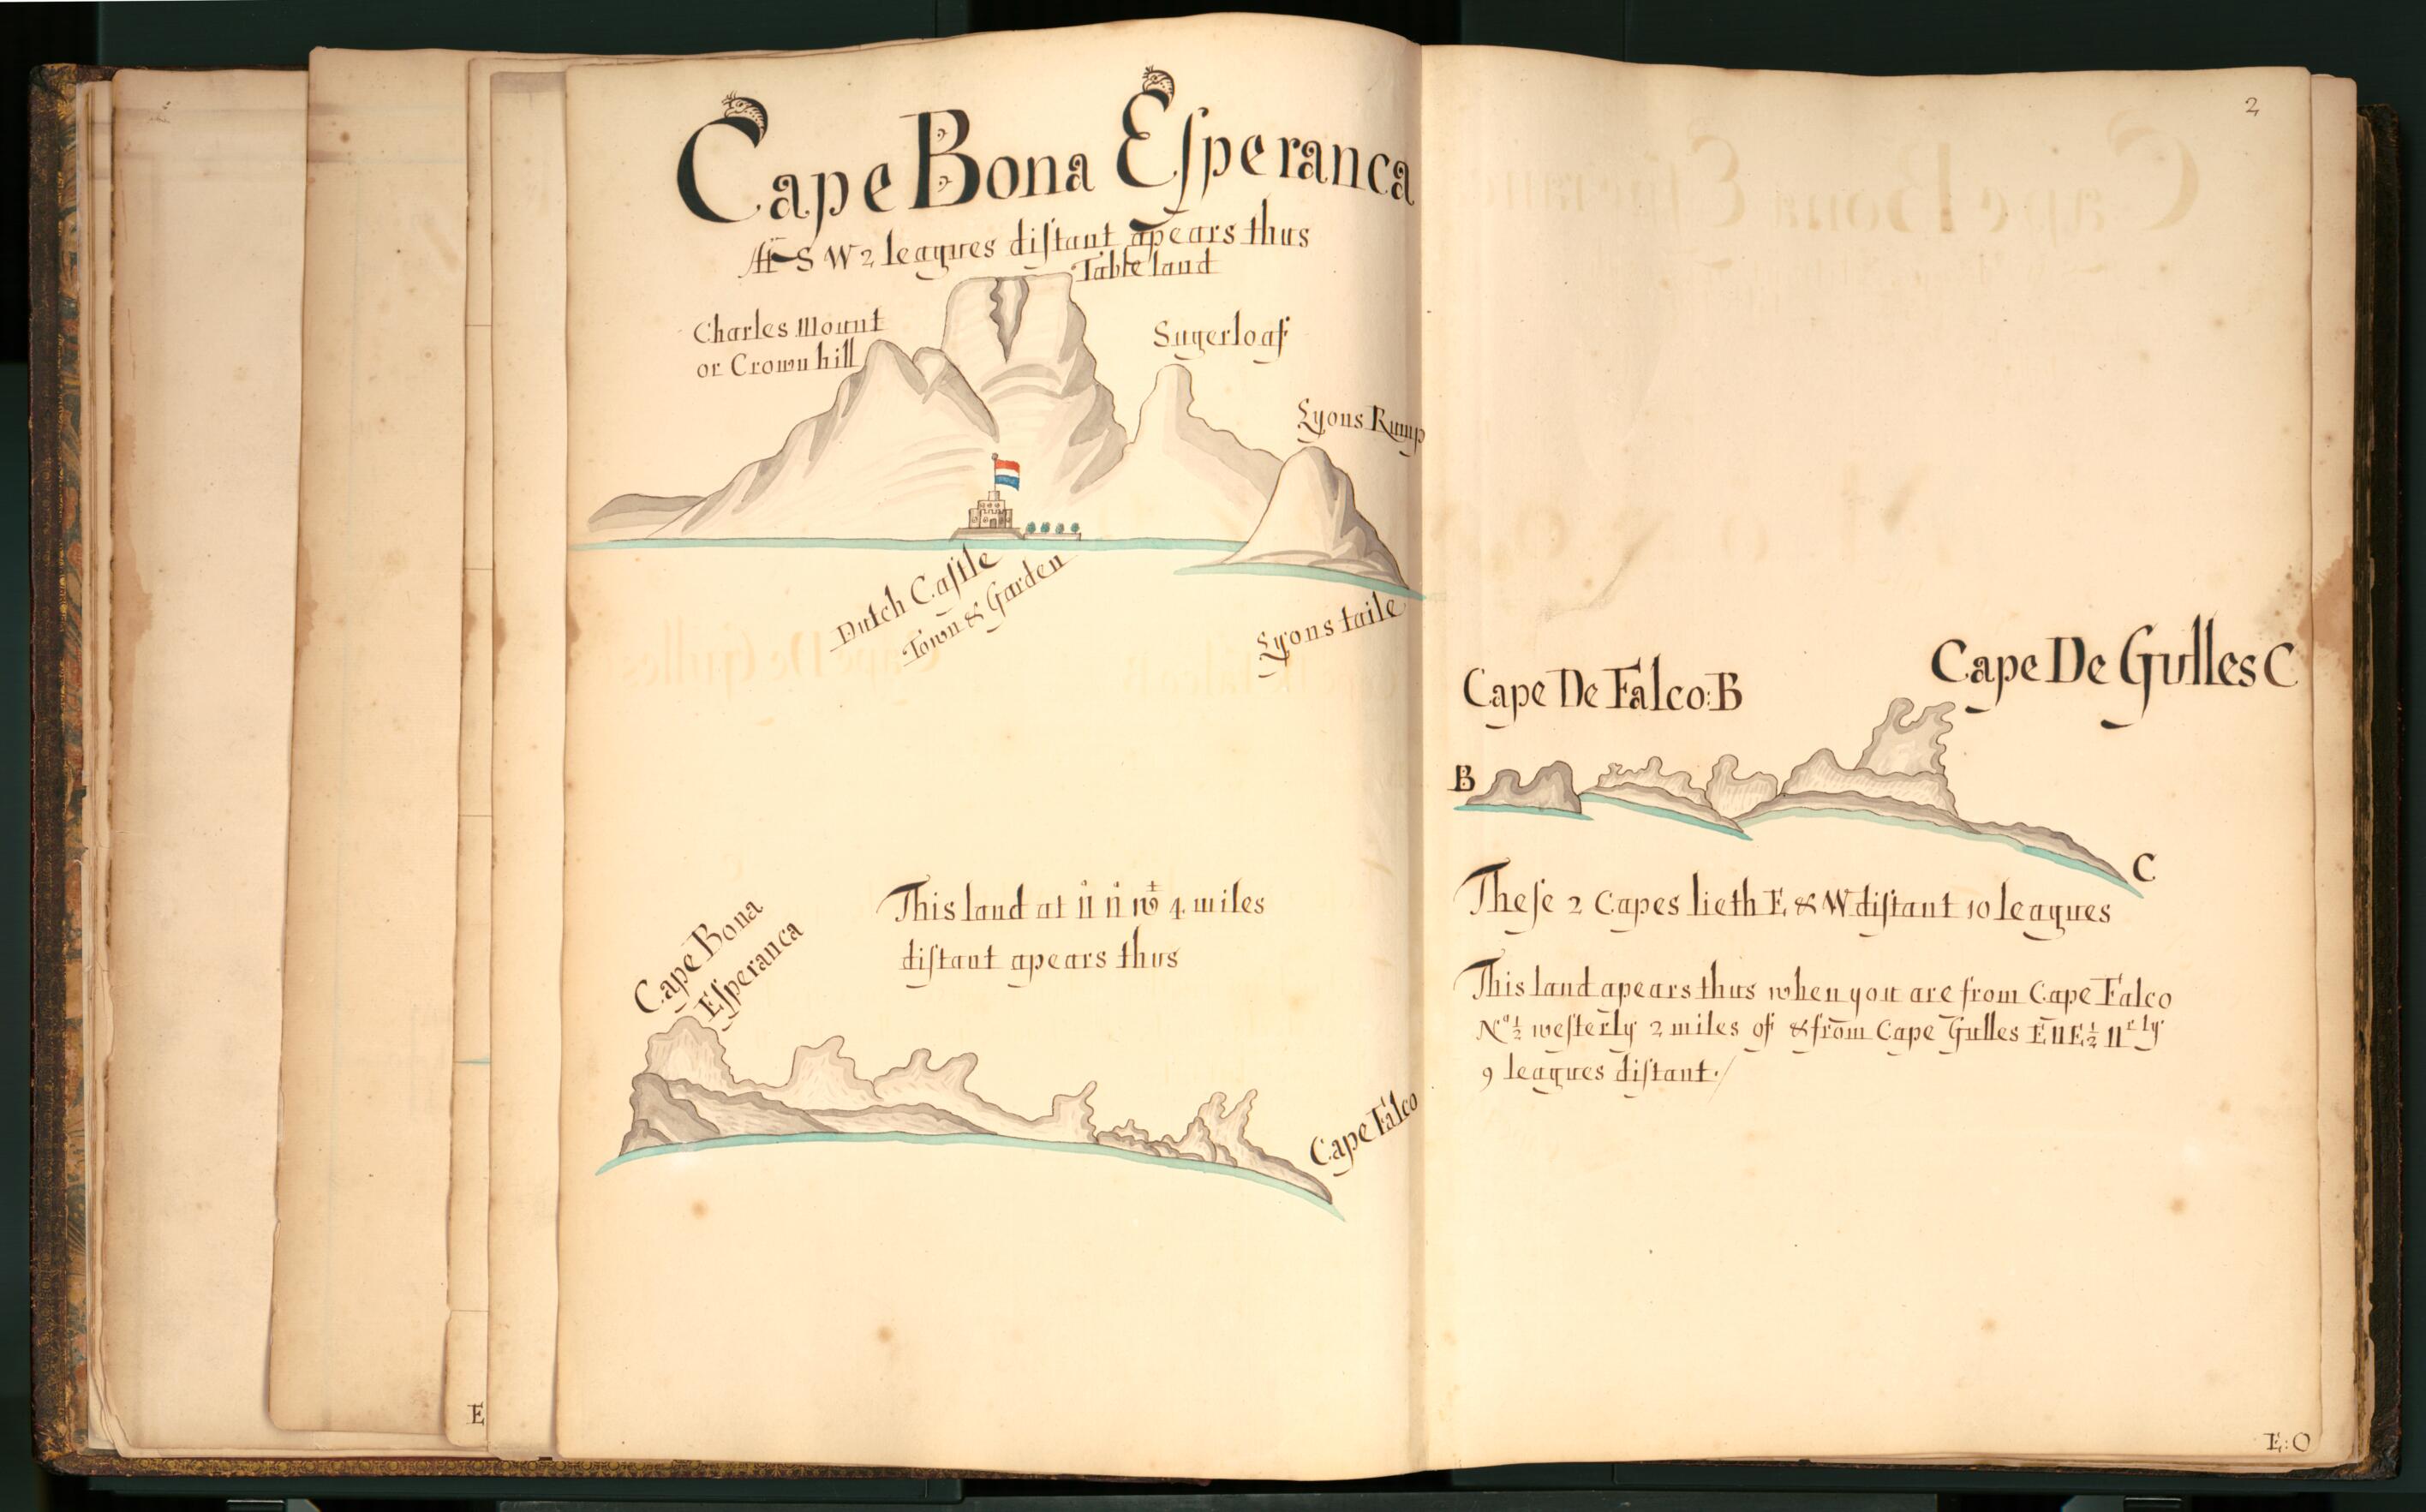 Cape Bona Eſperanca
At S W 2 leagues diſtant apears thus
Table land
Charles Mount
or Crown hill
Sugerloaf
Lyons Rump
Dutch Caſtle
Town & Garden
Lyons taile
This land at n n w 4 miles
diſtant apears thus
Cape Bona
Eſperanca
Cape Falco
E
2
Cape De Falco:B
Cape De Gulles C
B
C
Theſe 2 Capes lieth E & W diſtant 10 leagues
This land apears thus when you are from Cape Falco
N° ½ weſterly 2 miles of & from Cape Gulles E n E ½ nʳly
9 leagues diſtant./
E:O